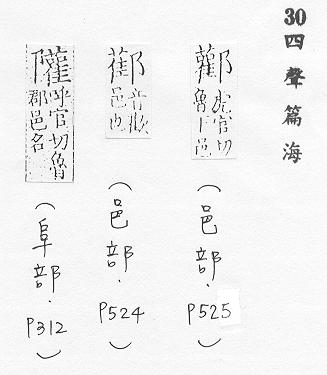 30四聲篇海
酄虎官切
魯下邑
(邑部.P525)
音歡
邑也
(邑部.P524)
呼官切魯
郡邑名
(阜部.P312)